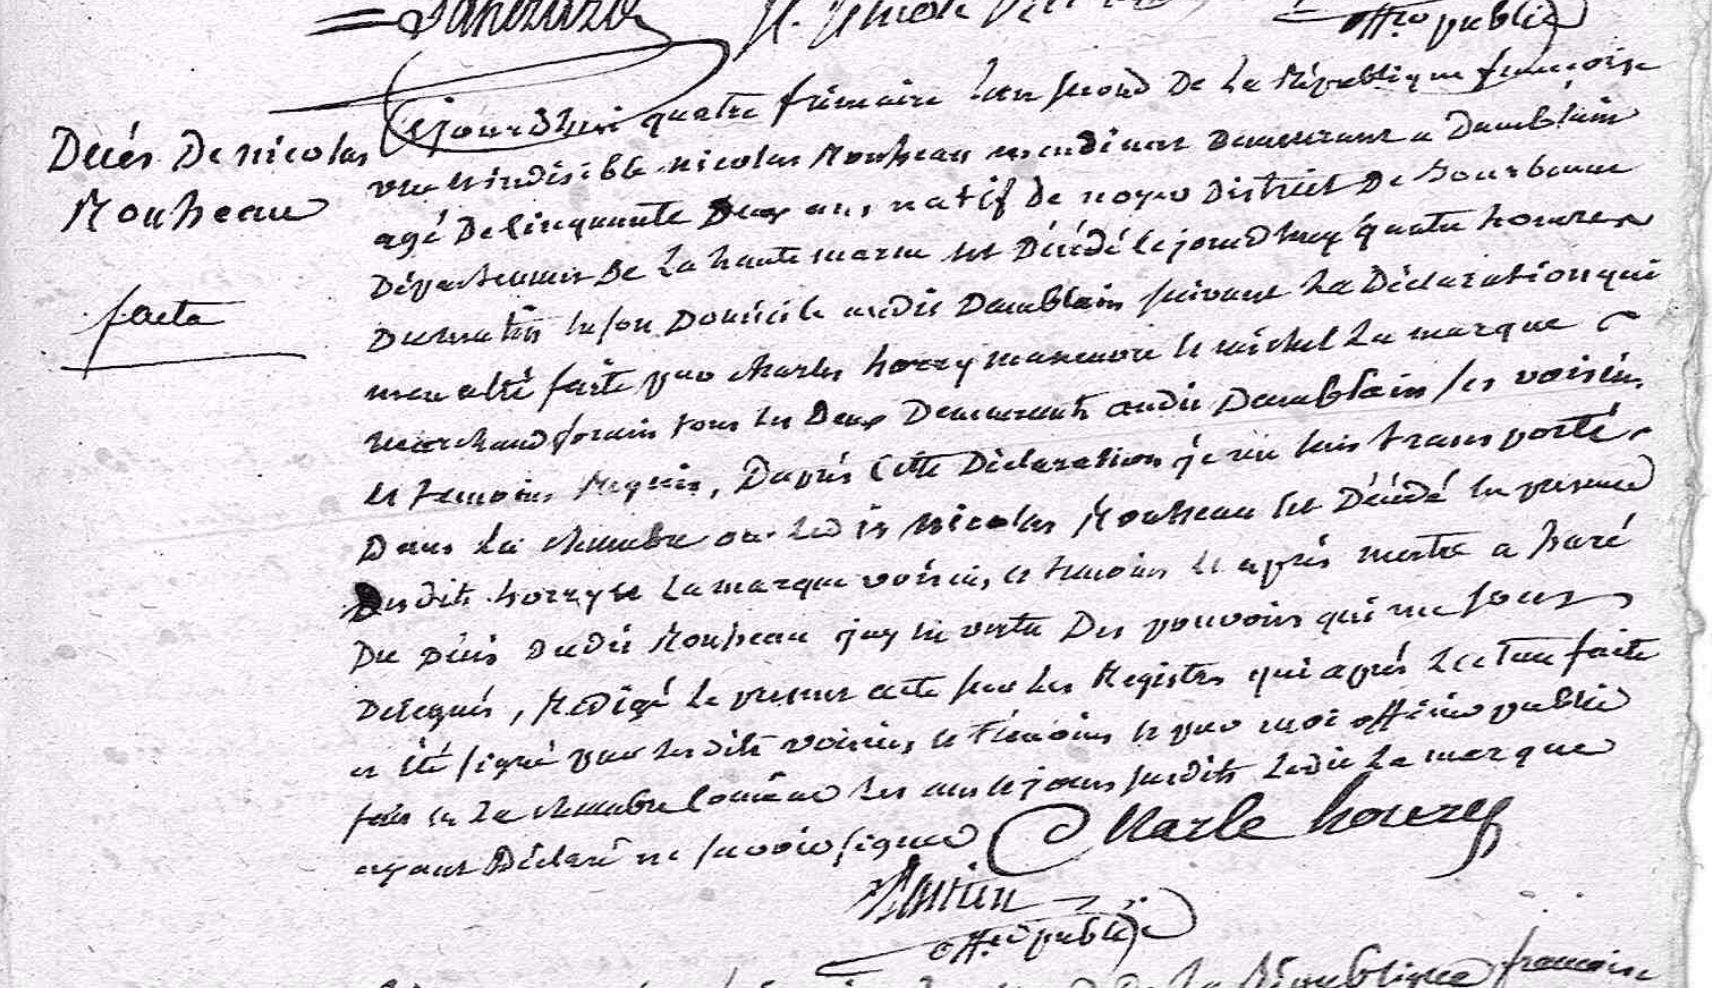 off.er public
Cejourdhui quatre frimaire l'an second De La République françoise
une et indisible nicolas Mouheau mendiant Demeurant a Damblain
Décés De nicolas
Mouheau
agé De cinquante Deux ans, natif de noyer District De bourbonne
Département De La haute marne est Décédé le jourdhuy quatre heures
facta
Dumatin en son Domicile audit Damblain suivant La Déclaration qui
men a été faite par charles horry manœuvre et michel La marque
marchand forain tous les Deux Demeurants audit Damblain ses voisins
et temoins Requis, Daprés Cette Déclaration je me suis transporté
Dans La chambre ou Ledit Nicolas Mouheau est Décédé en presence
Desdits horry et La marque voisins et temoins et aprés mettre a suré
Du Décés Dudit Mouheau jay en vertu Des pouvoirs qui me sont
Delegués, Redigé le present acte sur les Registres qui aprés Lecture faite
a été signé par lesdits voisins et témoins et par moi officier public
fait en La chambre Comune les an et jours susdits Ledit La marque
ayant Déclaré ne savoir signer Charle hourry
Martin
off.er public
De La République francoise